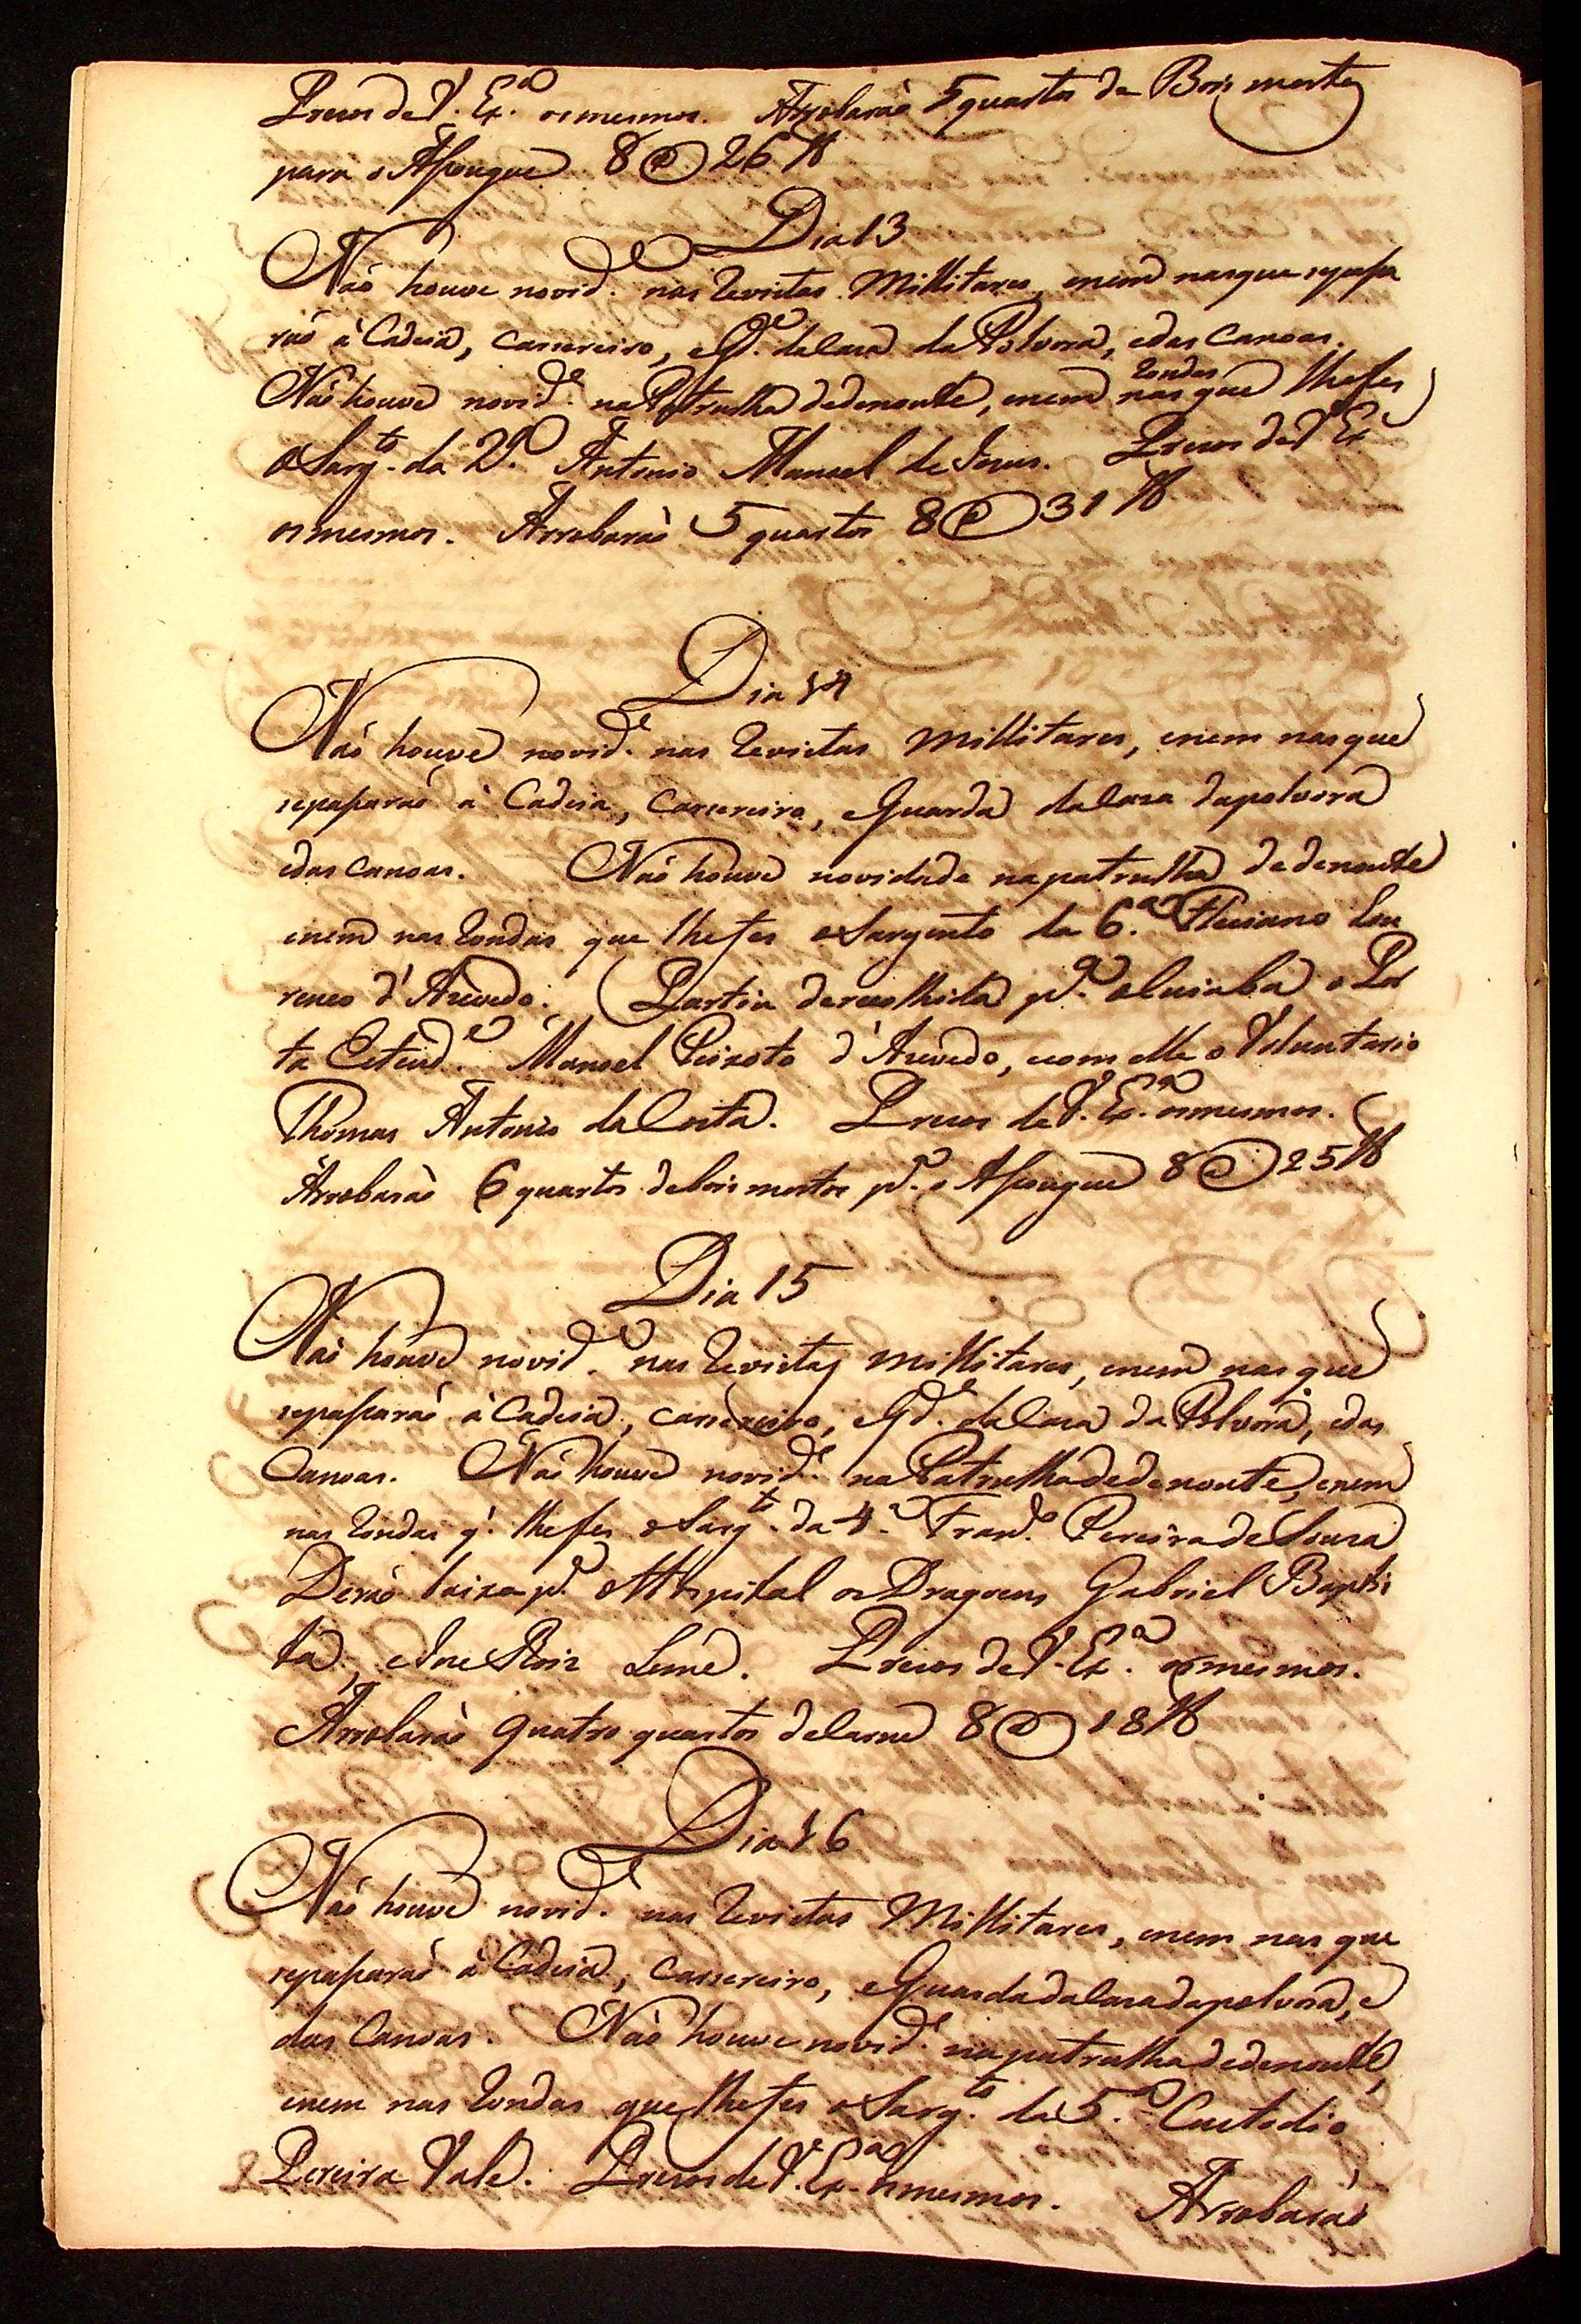 Prezos de V. Ex.ª os mesmos. Arrobarão 5 quartos de Bois mortos
para o Asougue 8 @ 26 lb
Dia 13
Não houve novid.e nas Revistas Millitares, enem nasque sepassa
rão à Cadeia, Carsereiro, eGd.e daCaza da Polvora, edas Canoas.
Não houve novid.e na Patrulha dedenoute, enem nas Rondas que lhefes
oSarg.to da 2.ª Antonio Manoel de Jesus. Prezos de V. Ex.
os mesmos. Arrobarão 5 quartos 8 @ 31 lb
Dia 14
Não houve novid.e nas Revistas Millitares, enem nasque
sepassarão à Cadeia, Carsereiro, eGuarda daCaza dapolvora
edas Canoas. Não houve novidade napatrulha dedenoute
enem nas Rondas que lhefes oSargento da 6.ª Lou
renço d'Azevedo. Partiu derecolhida p.ª oCuiabá o Por
ta Estend.e Manoel Peixoto d'Azevedo, ecom elle o Voluntario
Thomas Antonio daCosta. Prezos de V. Ex.ª osmesmos.
Arrobarão 6 quartos debois mortos p.ª o Asougue 8 @ 25 lb
Dia 15
Não houve novid.e nas Revistas millitares, enem nas que
sepassarão à Cadeia, Carsereiro, eGd.e daCaza da Polvora, edas
Canoas. Não houve novid.e naPatrulhadedenoute, enem
nas Rondas q' lhefes oSarg.to da 4.ª Fran.co Pereira de Souza
Derão baixa p.ª oHospital os Dragoens Gabriel Baptis
ta, eJoze Roiz Leme. Prezos de V. Ex.ª os mesmos.
Arrobarão quatro quartos deCarne 8 @ 18 lb
Dia 16
Não houve novid.e nas Revistas Millitares, enem nas que
sepassarão à Cadeia, Carsereiro, eGuardadaCazadapolvora, e
das Canoas. Não houve novid.e napatrulhadedenoute,
enem nas Rondas que lhefes oSarg.to da 5.ª Custodio
Pereira Vale. Prezos de V. Ex.ª osmesmos. Arrobarão